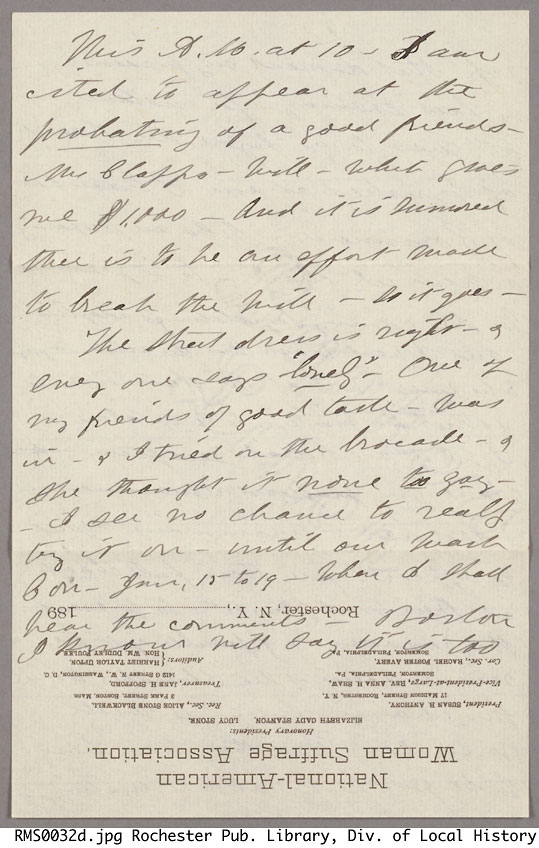 This A.M. at 10 - I am
cited to appear at the
probating of a good friends -
Mrs Clapps - Will - what gives
me $1,000 - And it is rumored
there is to be an effort made
to break the Will - so it goes -
The street dress is right - &
every one says "lovely" - One of
my friends of good taste - was
in - & I tried on the brocade - &
she thought it none too gay -
- I see no chance to really
try it on - until our Wash
Con - Jan, 15 to 19 - when I shall
hear the comments - Boston
I know will say it is too
Rochester, N. Y., 189
National-American
Woman Suffrage Association.
Honorary Presidents:
ELIZABETH CADY STANTON LUCY STONE.
President, SUSAN B. ANTHONY,
17 MADISON STREET, ROCHESTER, N. Y.
Vice-President-at-Large, REV. ANNA H. SHAW,
SOMERTON, PHILADELPHIA, PA.
Cor. Sec., RACHEL FOSTER AVERY,
SOMERTON, PHILADELPHIA, PA.
Rec. Sec., ALICE STONE BLACKWELL,
3 PARK STREET, BOSTON, MASS.
Treasurer, JANE H. SPOFFORD,
1412 N STREET, N. W., WASHINGTON, D. C.
Auditors: { HARRIET TAYLOR UPTON
HON. WM. DUDLEY FOULKE
RMS0032d.jpg Rochester Pub. Library, Div. of Local History